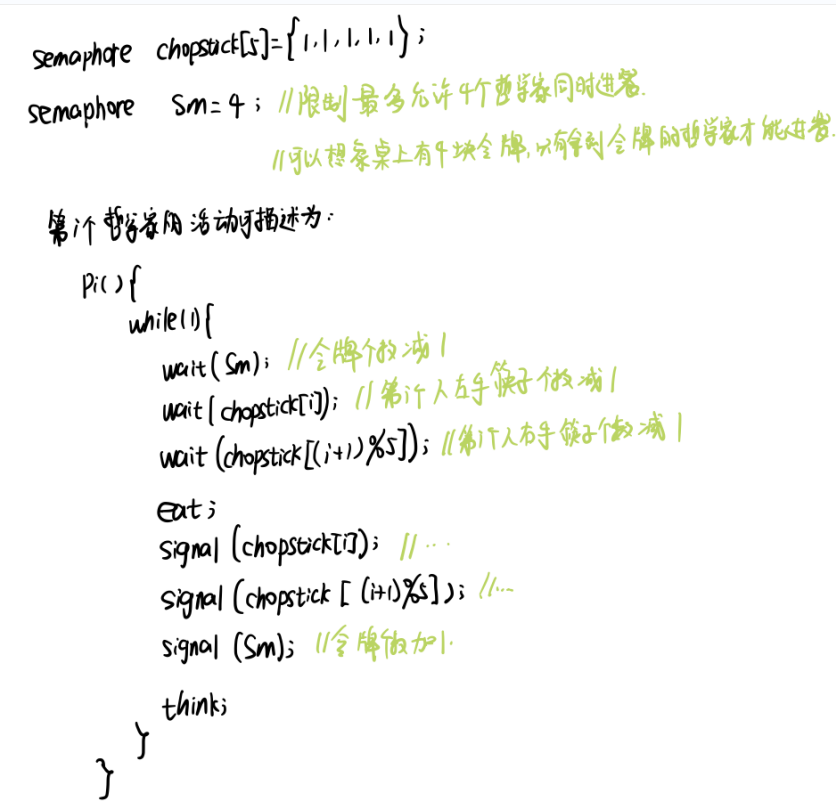 semaphore chopstick[5]={1,1,1,1,1};
semaphore Sm=4; //限制最多允许4个哲学家同时进餐.
//可以想象桌上有4块令牌,只有拿到令牌的哲学家才能进餐.
第i个哲学家的活动可描述为:
Pi(){
while(1){
wait(Sm); //令牌个数减1
wait(chopstick[i]); //第i个人左手筷子个数减1
wait(chopstick[(i+1)%5]); //第i个人右手筷子个数减1
eat;
signal(chopstick[i]); //...
signal(chopstick[(i+1)%5]); //...
signal(Sm); //令牌个数加1.
think;
}
}